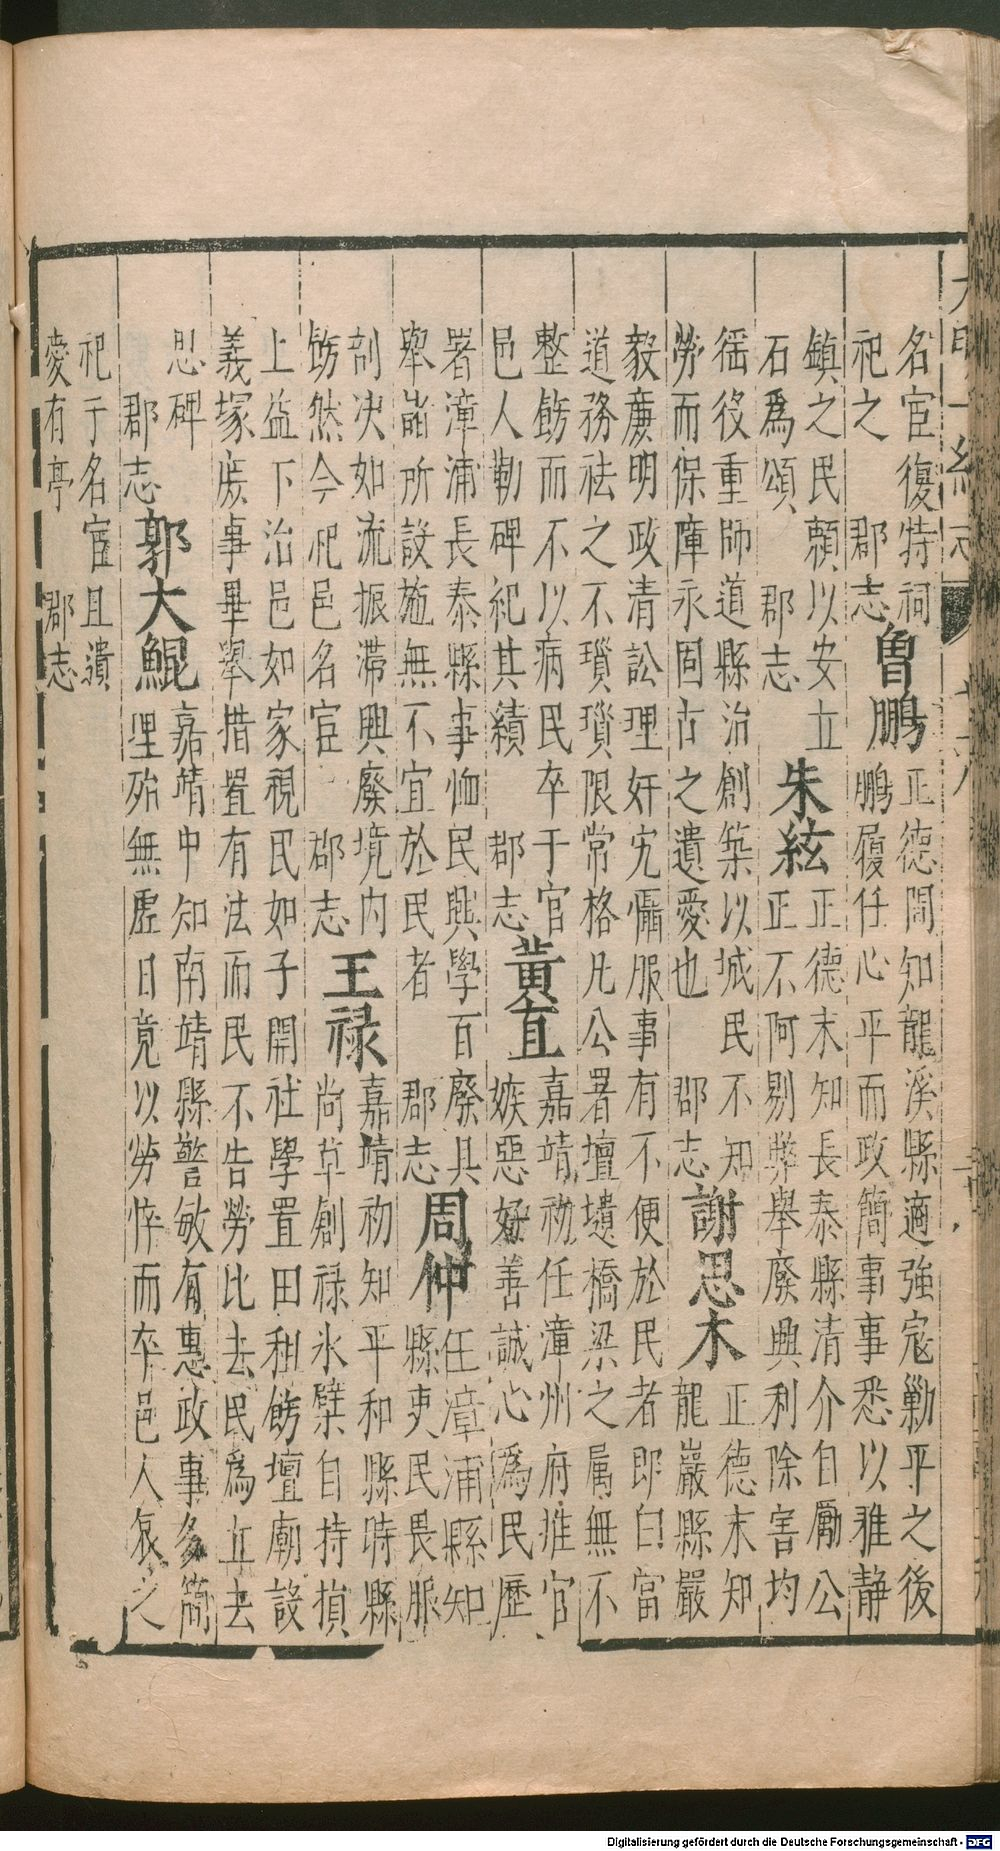 名宦復特祠
祀之　郡志
魯鵬
正德間知龍溪縣適強宼勦平之後
鵬履任心平而政簡事事悉以雅静
鎮之民頼以安立
石為頌　郡志
朱絃
正德末知長泰縣清介自勵公
正不阿剔弊舉廢興利除害均
徭役重師道縣治創築以城民不知
勞而保障永固古之遺愛也　郡志
謝思木
正德末知
龍巖縣嚴
毅廉明政清訟理奸宄懾服事有不便於民者即白當
道務祛之不瑣瑣限常格凡公署壇壝橋梁之属無不
整飭而不以病民卒于官
邑人勒碑紀其績　郡志
黃直
嘉靖初任漳州府推官
嫉惡好善誠心為民歷
署漳浦長泰縣事恤民興學百廢具
舉諸所設施無不宜於民者　郡志
周仲
任漳浦縣知
縣吏民畏服
剖决如流振滯興廢境内
飭然今祀邑名宦　郡志
王禄
嘉靖初知平和縣時縣
尚草創禄氷檗自持損
上益下治邑如家視民如子開社學置田租飭壇廟設
義塚廢事畢舉措置有法而民不告勞比去民為立去
思碑
郡志
郭大鯤
嘉靖中知南靖縣警敏有惠政事多簡
理殆無虛日竟以勞悴而卒邑人哀之
祀于名宦且遺
愛有亭　郡志
Digitalisierung gefördert durch die Deutsche Forschungsgemeinschaft - DFG